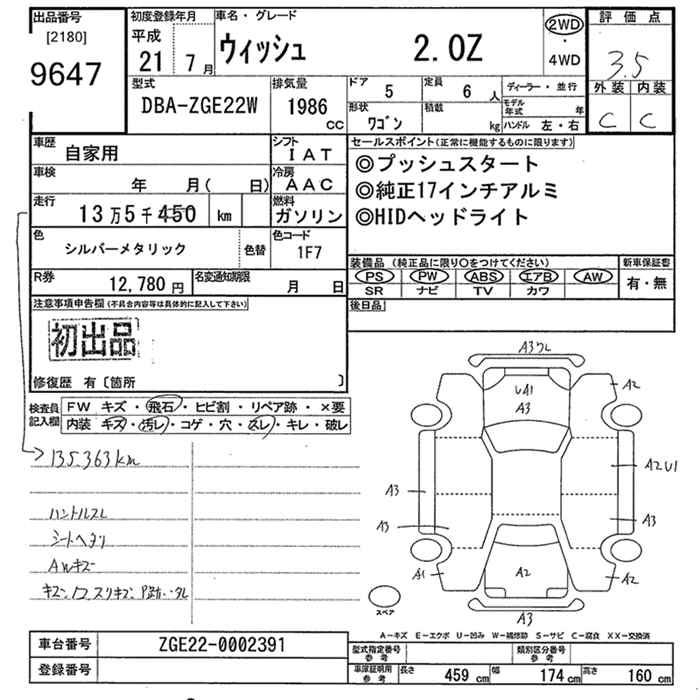 出品番号 初度登録年月 車名・グレード 評価点
[2180]
9647
平成
21 7月
ウィッシュ 2.0Z
2WD
・
4WD
3.5
外装 内装
C C
型式 排気量 ドア 定員 ディーラー・並行
DBA-ZGE22W 1986 CC 5 6人
形状 積載 モデル年式 年
ワゴン kg ハンドル 左・右
車歴 自家用 シフト IAT
車検 年 月( 日) 冷房 AAC
走行 13万5千450 km 燃料 ガソリン
色 シルバーメタリック 色替 色コード 1F7
R券 12,780円 名変通知期限 月 日
セールスポイント(正常に機能するものに限ります)
◎プッシュスタート
◎純正17インチアルミ
◎HIDヘッドライト
装備品 (純正品に限り○をつけてください) 新車保証書
PS PW ABS エアB AW 有・無
SR ナビ TV カワ
後日品
注意事項申告欄(不具合内容等は具体的に記入して下さい)
初出品
修復歴 有〔箇所 〕
検査員記入欄 FW キズ・飛石・ヒビ割・リペア跡・×要
内装 キズ・汚レ・コゲ・穴・スレ・キレ・破レ
135.363km
ハンドルスレ
シートヘタリ
AWキズ
A3ワレ
UA1
A3
A2
A2U1
A3
A3
A3
A1
A2
A2
A3
スペア
A-キズ E-エクボ U-凹み W-補修跡 S-サビ C-腐食 XX-交換済
車台番号 ZGE22-0002391
登録番号
型式指定番号 参考 類別区分番号 参考
車庫証明用 参考 長さ 459cm 幅 174cm 高さ 160cm